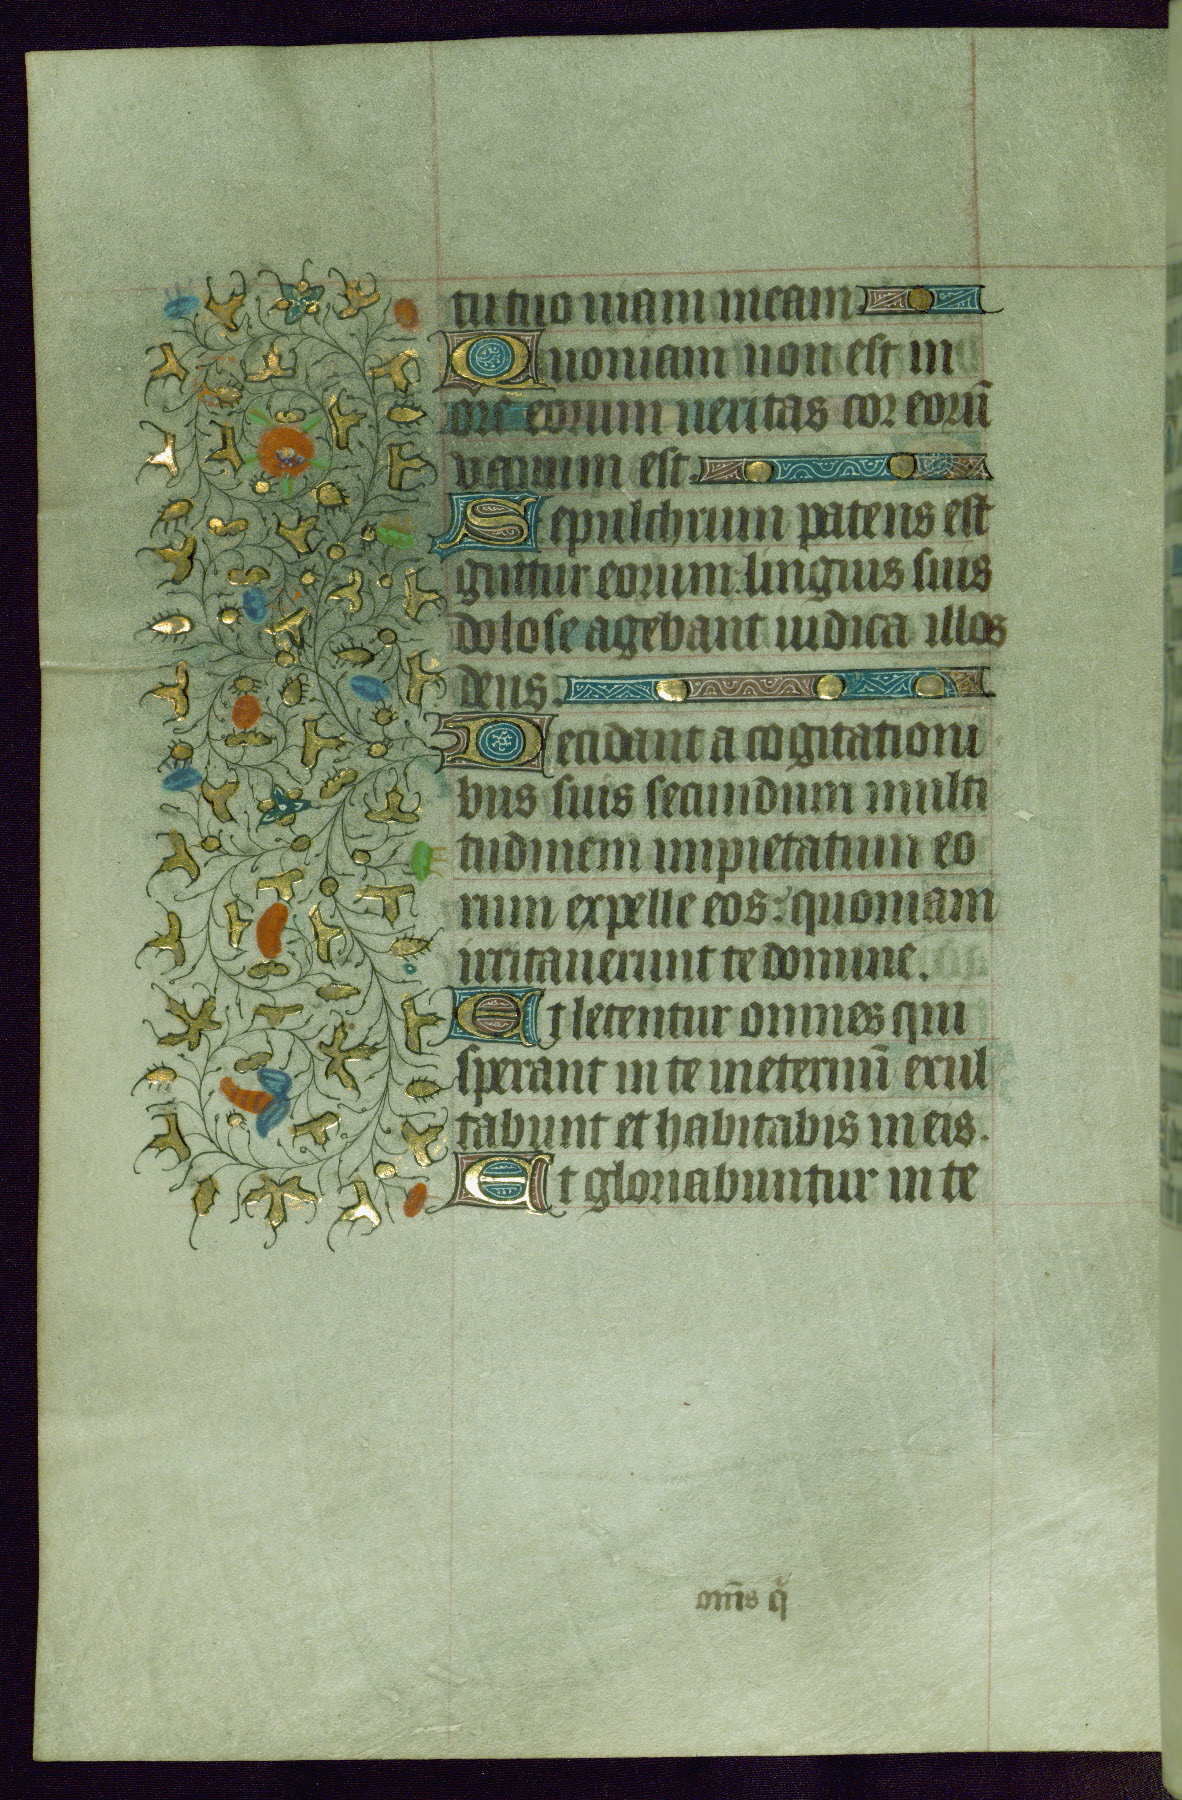 tu tuo uiam meam
Quoniam non est in
ore eorum ueritas cor eorū
vanum est.
Sepulchrum patens est
guttur eorum: linguis suis
dolose agebant iudica illos
deus.
Decidant a cogitationi
bus suis secundum multi
tudinem impietatum eo
rum expelle eos: quoniam
irritauerunt te domine.
Et letentur omnes qui
sperant in te in eternū exul
tabunt et habitabis in eis.
Et gloriabuntur in te
om̄s q̄